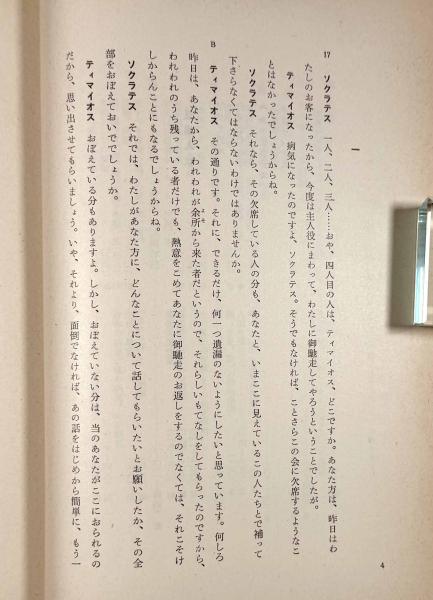 一
17 ソクラテス 一人、二人、三人……おや、四人目の人は、ティマイオス、どこですか。あなた方は、昨日はわ
たしのお客になったから、今度は主人役にまわって、わたしに御馳走してやろうということでしたが。
ティマイオス 病気になったのですよ、ソクラテス。そうでもなければ、ことさらこの会に欠席するようなこ
とはなかったでしょうからね。
ソクラテス それなら、その欠席している人の分も、あなたと、いまここに見えているこの人たちとで補って
下さらなくてはならないわけではありませんか。
B ティマイオス その通りです。それに、できるだけ、何一つ遺漏のないようにしたいと思っています。何しろ
昨日は、あなたから、われわれが余所から来た者だというので、それらしいもてなしをしてもらったのですから、
よそ
われわれのうち残っている者だけでも、熱意をこめてあなたに御馳走のお返しをするのでなくては、それこそけ
しからんことにもなるでしょうからね。
ソクラテス それでは、わたしがあなた方に、どんなことについて話してもらいたいとお願いしたか、その全
部をおぼえておいででしょうか。
ティマイオス おぼえている分もありますよ。しかし、おぼえていない分は、当のあなたがここにおられるの
だから、思い出させてもらいましょう。いや、それより、面倒でなければ、あの話をはじめから簡単に、もう一
4